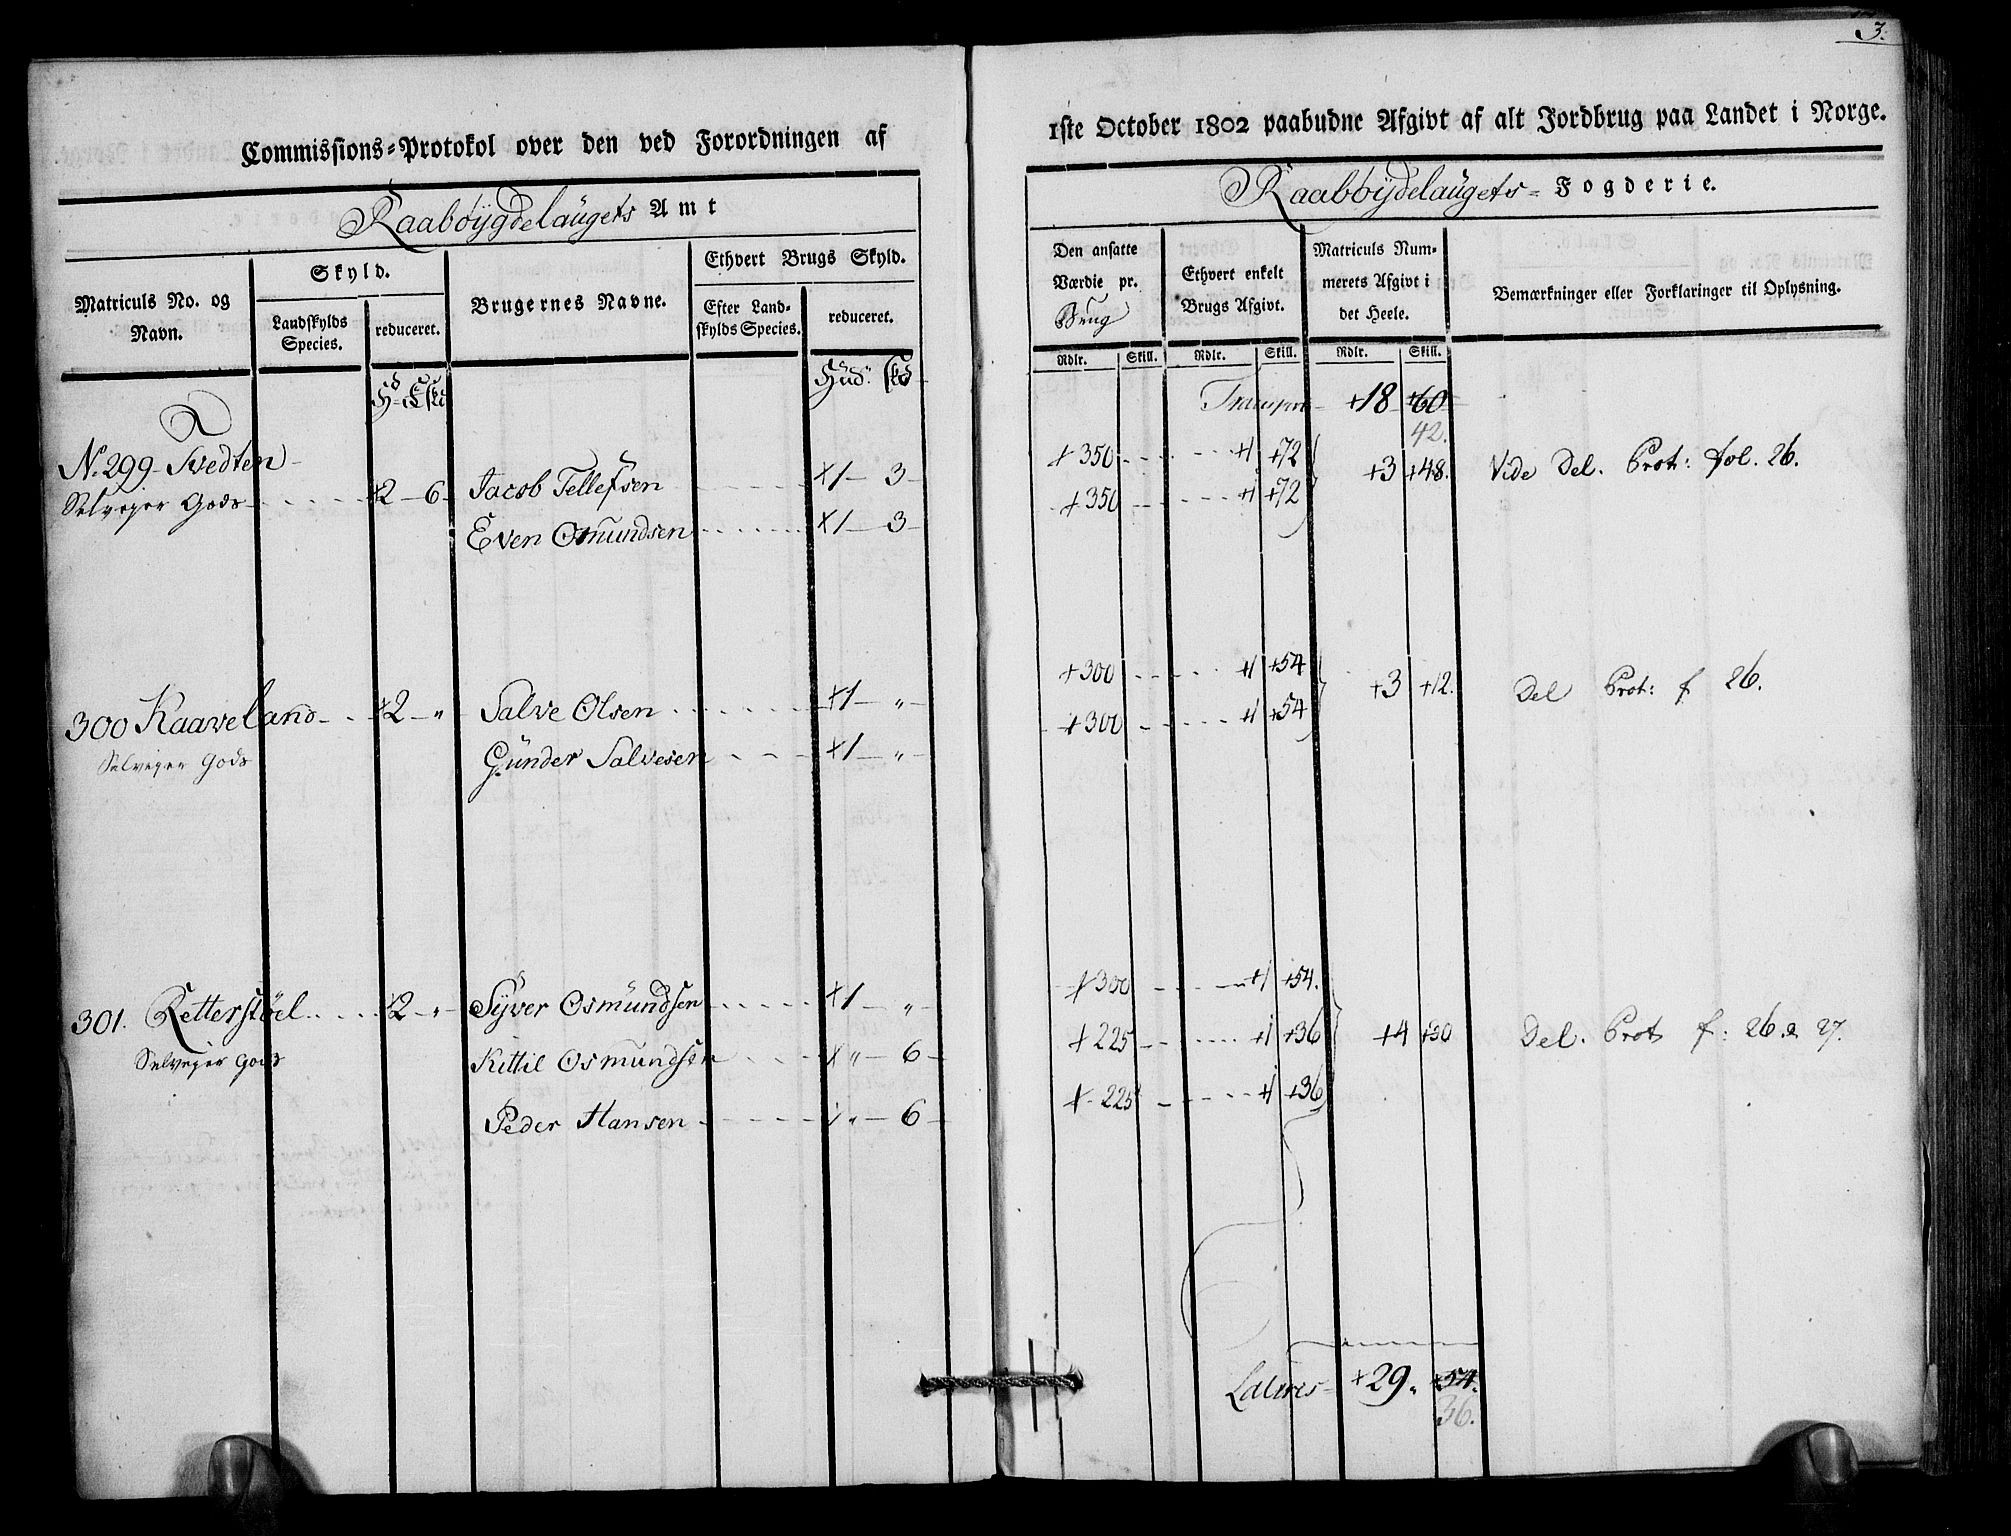 3.
Commissions=Protokol over den ved Forordningen af
1ste October 1802 paabudne Afgivt af alt Jordbrug paa Landet i Norge.
Raabøygdelaugets Amt
Raabøydelaugets= Fogderie.
Matriculs No. og Navn.
Skyld.
Landskylds Species.
reduceret.
Brugernes Navne.
Ethvert Brugs Skyld.
Efter Landskylds Species.
reduceret.
Den ansatte Værdie pr. Brug
Ethvert enkelt Brugs Afgivt.
Matriculs Nummerets Afgivt i det Heele.
Bemærkninger eller Forklaringer til Oplysning.
Rdlr. Skill. Rdlr. Skill. Rdlr. Skill.
Transport +18 +60
42.
No. 299 Tvedten
Selveyer Gods +2 - 6 Jacob Tellefsen +1 - 3 +350 +1 +72 +3 +48. Vide Del. Prot: fol. 26.
Even Osmundsen +1 - 3 +350 +1 +72
300 Kaaveland +2 - " Salve Olsen +1 - " +300 +1 +54 +3 +12. Del Prot: f 26.
Selveyer Gods Günder Salvesen +1 - " +300 +1 +54
301. Retterstöel +2 - " Syver Osmündsen +1 - " +300 +1 +54.
Selveyer Gods Kittil Osmundsen + " - 6 +225 +1 +36 +4 +30 Del. Prot f: 26. & 27.
Peder Hansen " - 6 +225 +1 +36
Lateres +29 " +54.
36.